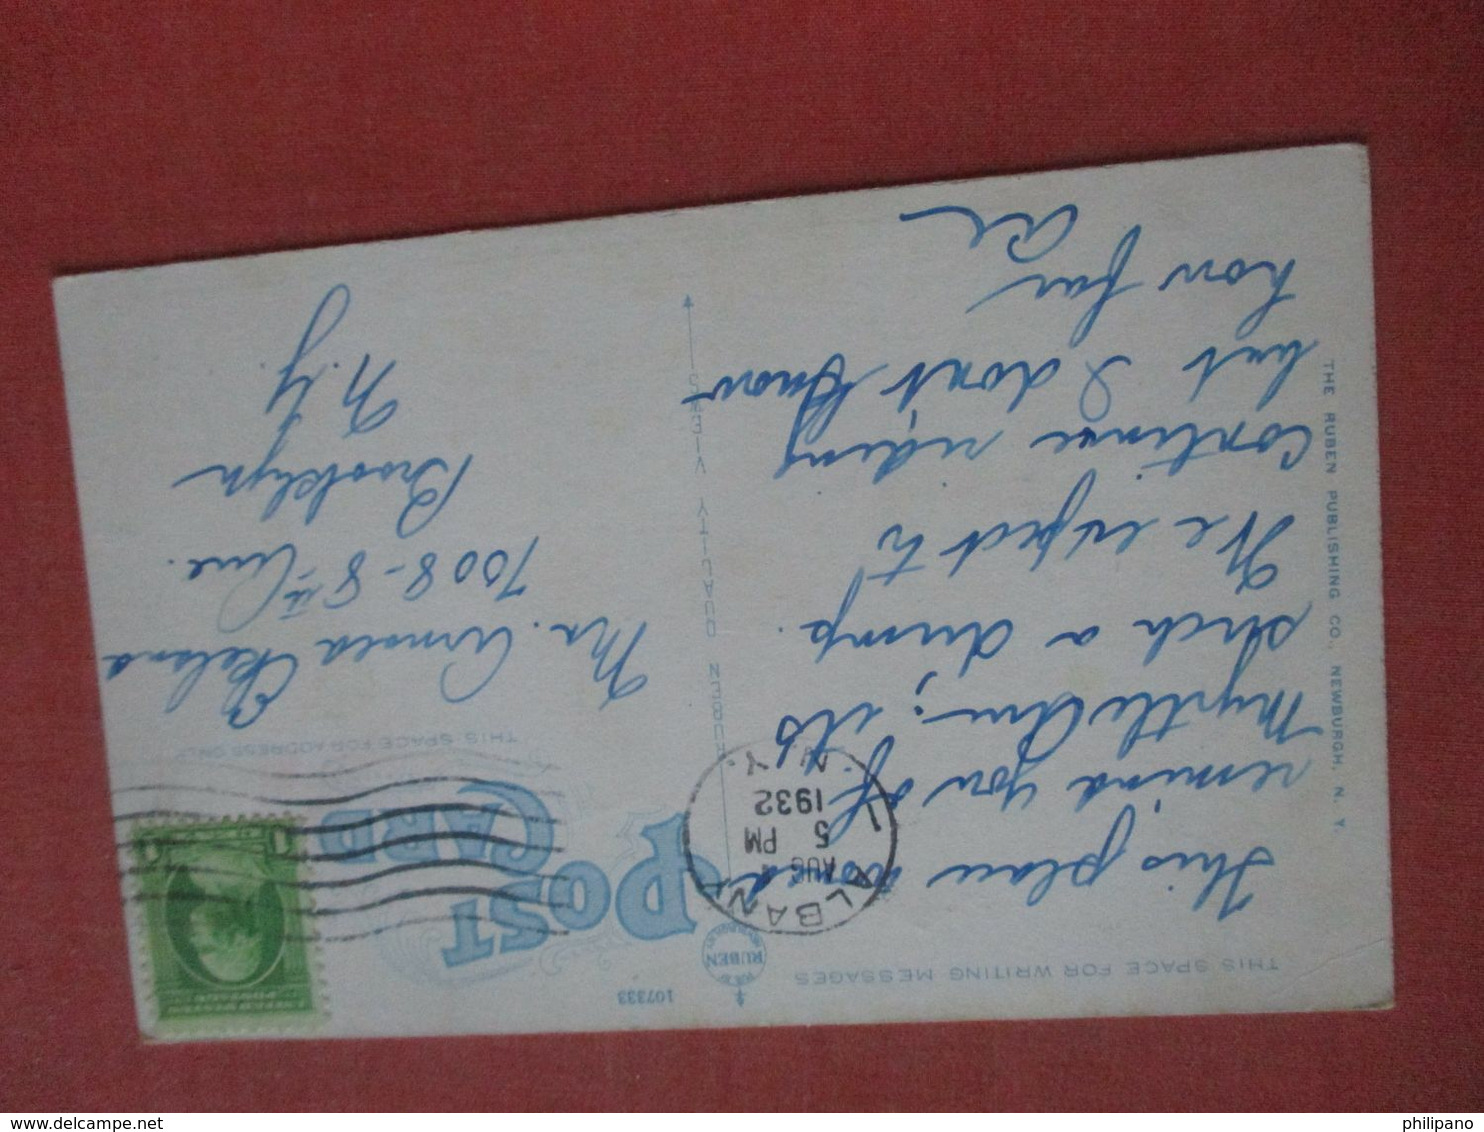 THIS SPACE FOR WRITING MESSAGES
107333
RUBEN
POST
CARD
THIS SPACE FOR ADDRESS ONLY
ALBANY
1
AUG 4
5 PM
1932
N.Y.
This place would
remind you of
Myrtle Ave; its
such a dump.
We expect to
continue riding
but I don't know
how far
Al
Mr. Arnold
7008-8th Ave.
Brooklyn
N.Y.
RUBEN QUALITY VIEWS
THE RUBEN PUBLISHING CO., NEWBURGH, N. Y.
philipano
delcampe.net